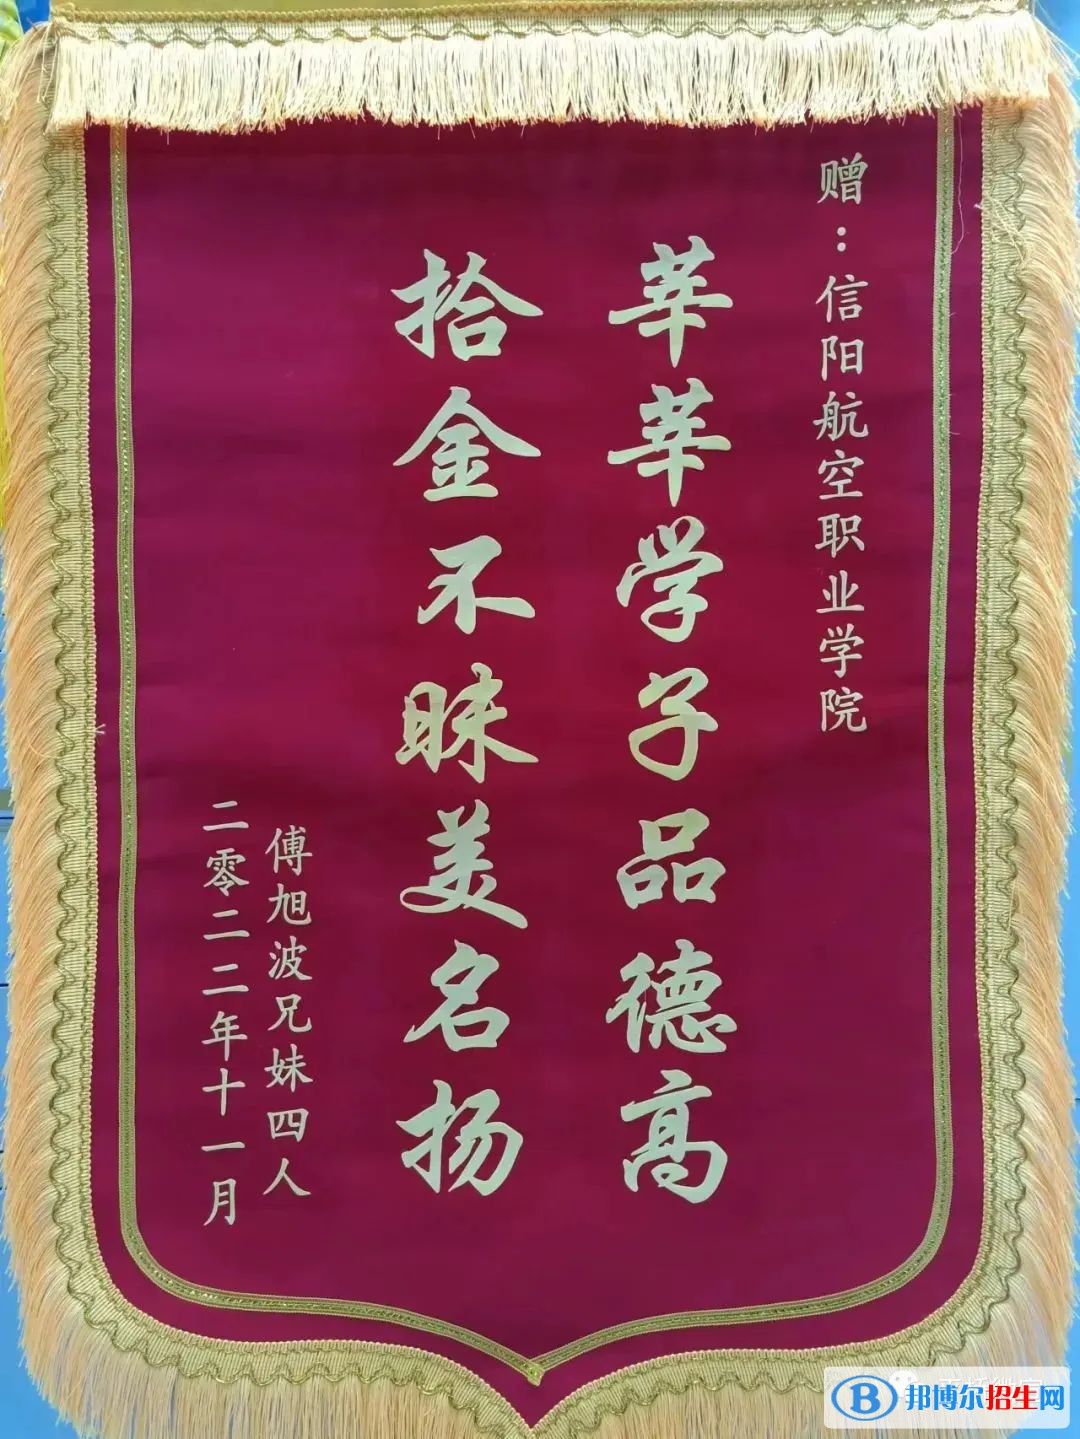 赠：信阳航空职业学院
莘莘学子品德高
拾金不昧美名扬
傅旭波兄妹四人
二零二二年十一月
B 邦博尔招生网